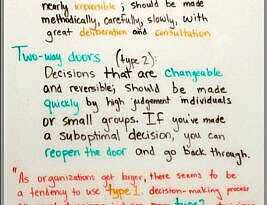 nearly irreversible; should be made
methodically, carefully, slowly, with
great deliberation and consultation
Two-way doors (type 2):
Decisions that are changeable
and reversible; should be made
quickly by high judgement individuals
or small groups. If you've made
a suboptimal decision, you can
reopen the door and go back through.
"As organizations get larger, there seems to be
a tendency to use type 1 decision-making process
type 2